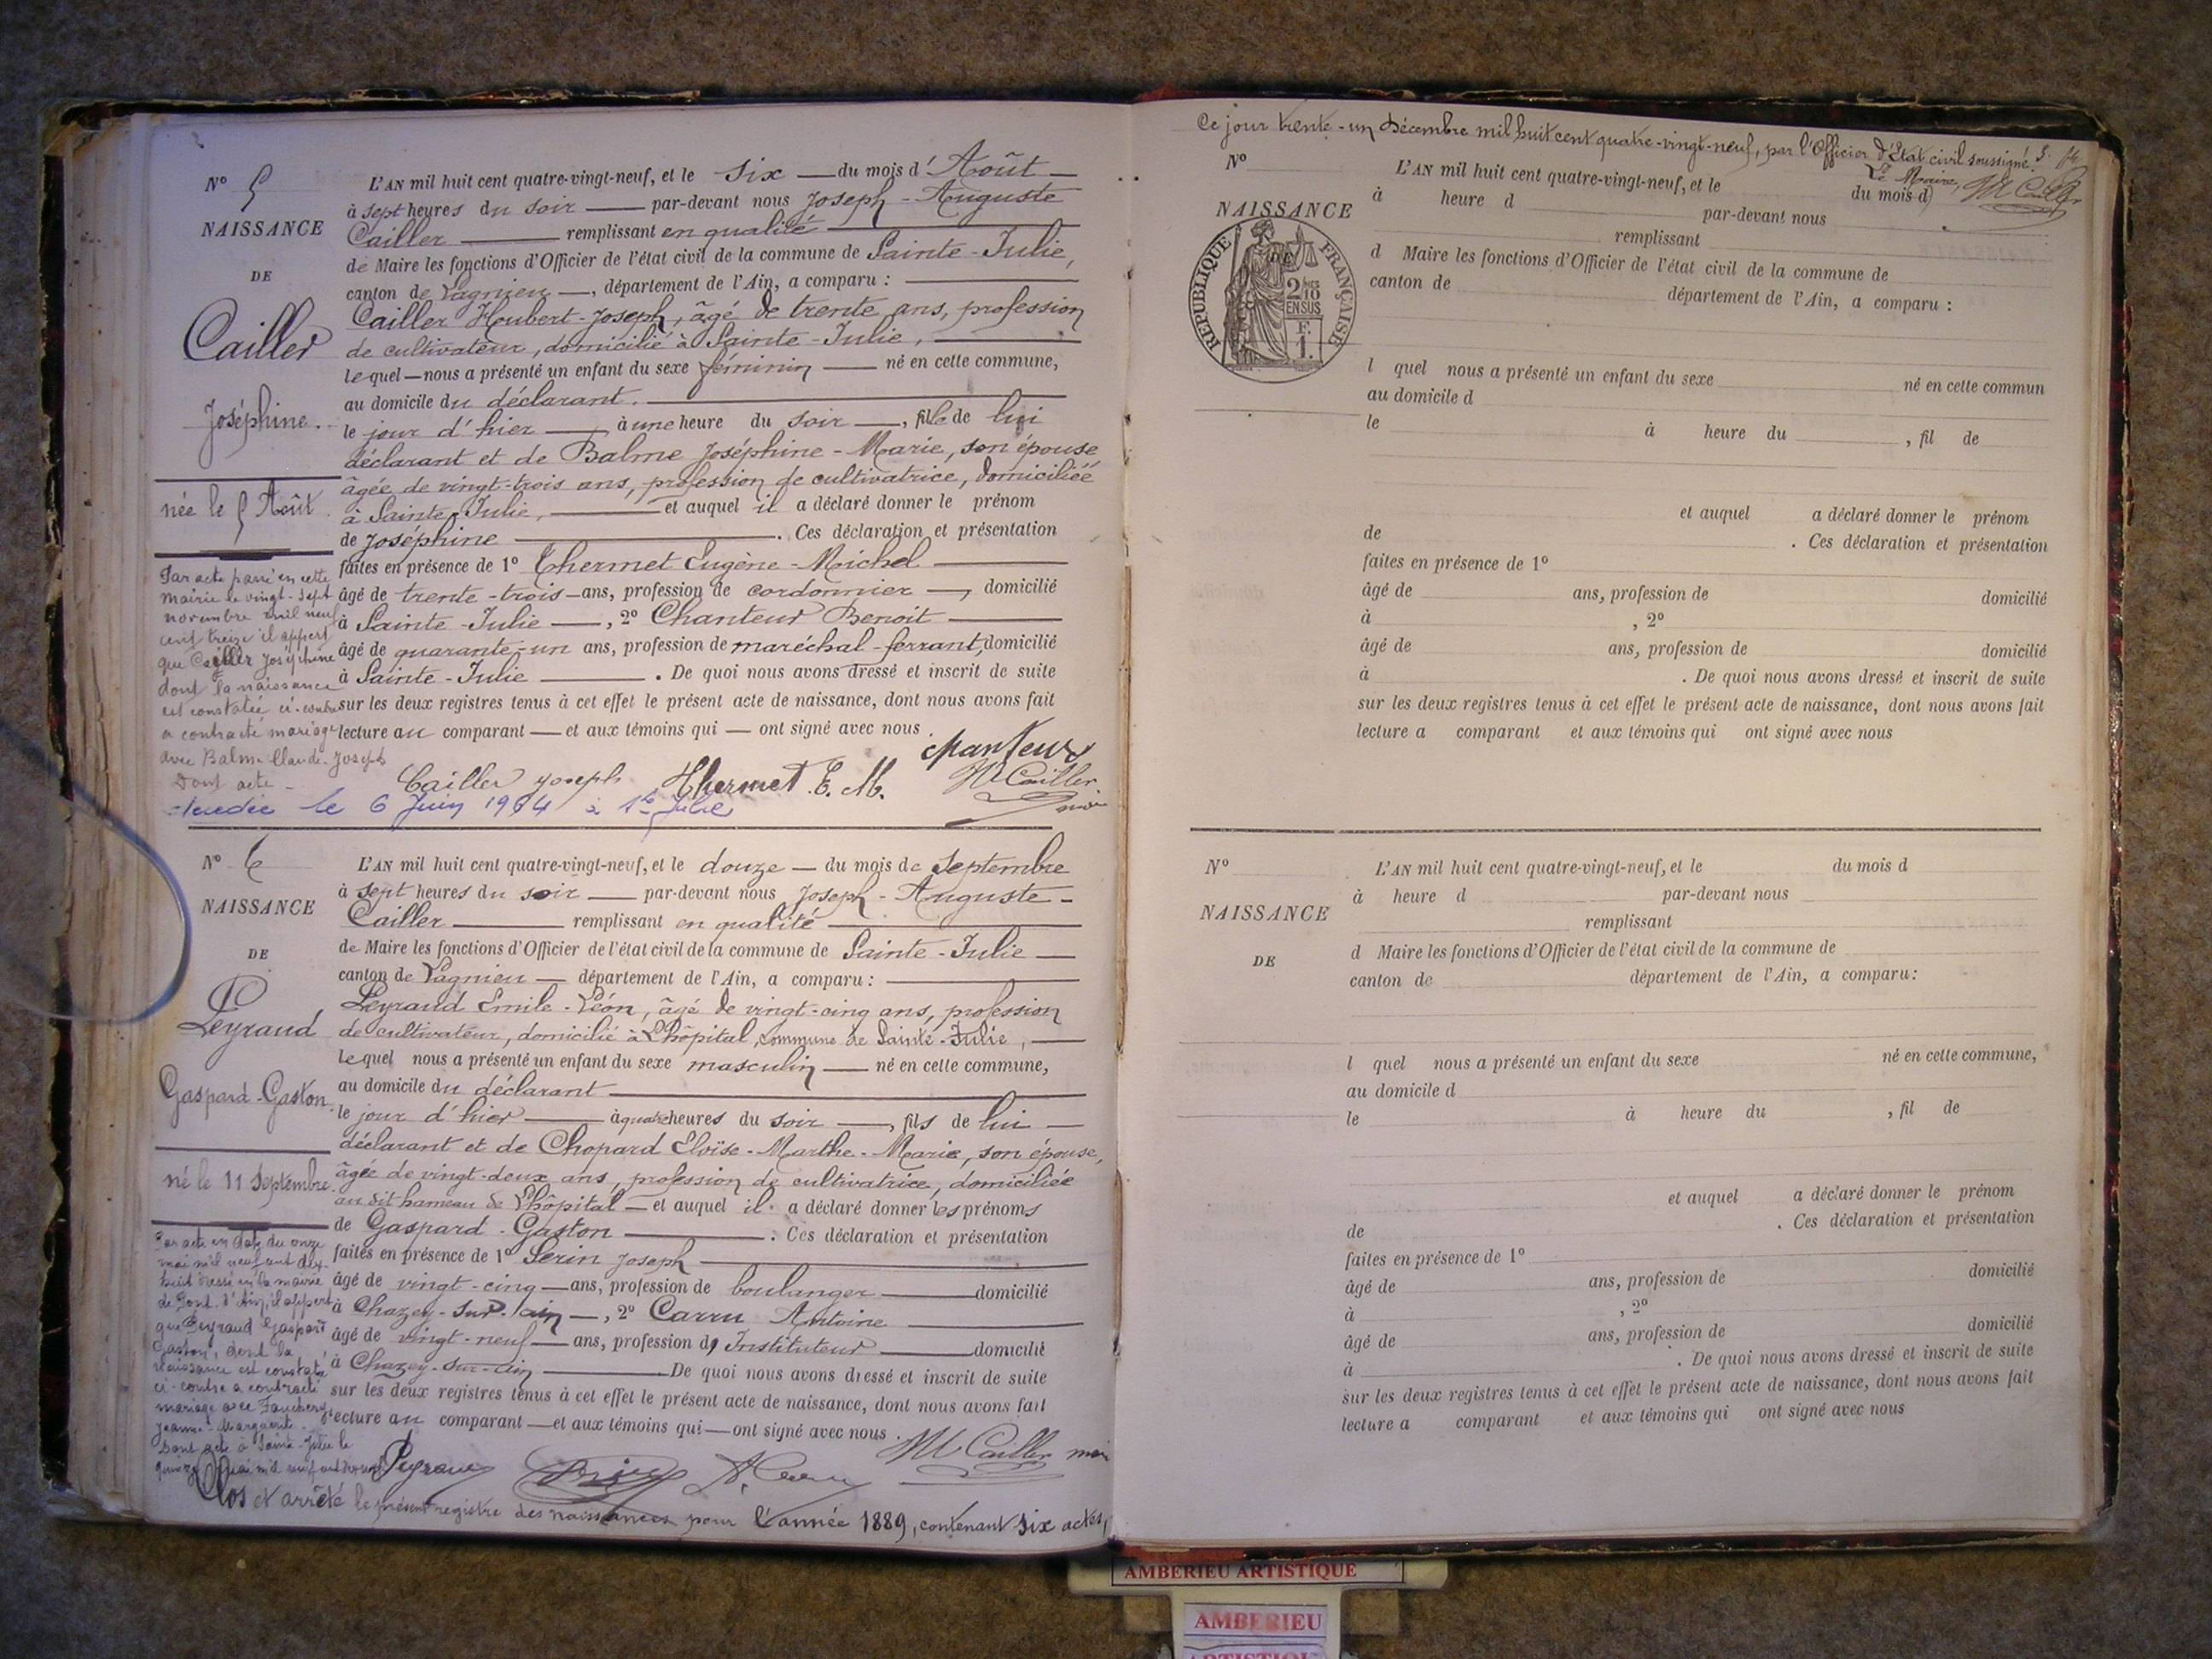 N° 5
NAISSANCE
DE
Cailler
Joséphine.
née le 5 Août.
L'AN mil huit cent quatre-vingt-neuf, et le six — du mois d'Août —
à sept heures du soir — par-devant nous Joseph-Auguste
Cailler — remplissant en qualité —
de Maire les fonctions d'Officier de l'état civil de la commune de Sainte-Julie,
canton de Lagnieu —, département de l'Ain, a comparu : —
Cailler Houbert-Joseph, âgé de trente ans, profession
de cultivateur, domicilié à Sainte-Julie, —
lequel — nous a présenté un enfant du sexe féminin — né en cette commune,
au domicile du déclarant. —
le jour d'hier — à une heure du soir —, fille de lui
déclarant et de Balme Joséphine-Marie, son épouse
âgée de vingt-trois ans, profession de cultivatrice, domiciliée
à Sainte-Julie, — et auquel il a déclaré donner le prénom
de Joséphine — . Ces déclaration et présentation
faites en présence de 1° Thermet Eugène-Michel —
âgé de trente-trois — ans, profession de cordonnier —, domicilié
à Sainte-Julie —, 2° Chanteur Benoit —
âgé de quarante-un ans, profession de maréchal-ferrant, domicilié
à Sainte-Julie — . De quoi nous avons dressé et inscrit de suite
sur les deux registres tenus à cet effet le présent acte de naissance, dont nous avons fait
lecture au comparant — et aux témoins qui — ont signé avec nous .
Par acte passé en cette
mairie le vingt-sept
novembre mil neuf
cent treize il appert
que Cailler Joséphine
dont la naissance
est constatée ci-contre
a contracté mariage
avec Balme Claude-Joseph
Dont acte -
Chanteur
Cailler Joseph Thermet E. M. Cailler
décédée le 6 Juin 1964 à Ste Julie
N° 6
NAISSANCE
DE
Peyraud
Gaspard-Gaston.
né le 11 Septembre.
L'AN mil huit cent quatre-vingt-neuf, et le douze — du mois de Septembre
à sept heures du soir — par-devant nous Joseph-Auguste-
Cailler — remplissant en qualité —
de Maire les fonctions d'Officier de l'état civil de la commune de Sainte-Julie —
canton de Lagnieu — département de l'Ain, a comparu : —
Peyraud Emile-Léon, âgé de vingt-cinq ans, profession
de cultivateur, domicilié à Lhôpital, commune de Sainte-Julie, —
lequel nous a présenté un enfant du sexe masculin — né en cette commune,
au domicile du déclarant —
le jour d'hier — à quatre heures du soir —, fils de lui —
déclarant et de Chopard Eloïse-Marthe-Marie, son épouse,
âgée de vingt-deux ans, profession de cultivatrice, domiciliée
au dit hameau de Lhôpital — et auquel il a déclaré donner les prénoms
de Gaspard-Gaston — . Ces déclaration et présentation
faites en présence de 1° Serin Joseph —
âgé de vingt-cinq — ans, profession de boulanger — domicilié
à Chazey-sur-Ain —, 2° Carru Antoine —
âgé de vingt-neuf — ans, profession d'Instituteur — domicilié
à Chazey-sur-Ain — De quoi nous avons dressé et inscrit de suite
sur les deux registres tenus à cet effet le présent acte de naissance, dont nous avons fait
lecture au comparant — et aux témoins qui — ont signé avec nous .
Par acte en date du onze
mai mil neuf cent dix-
huit dressé en la mairie
de Pont-d'Ain, il appert
que Peyraud Gaspard
Gaston, dont la
naissance est constatée
ci-contre a contracté
mariage avec
Jeanne-Marguerite.
Dont acte à Sainte-Julie le
quinze mai mil neuf cent
Peyraud Cailler
Clos et arrêté le présent registre des naissances pour l'année 1889, contenant six actes,
Ce jour trente-un Décembre mil huit cent quatre-vingt-neuf, par l'Officier d'Etat civil soussigné.
Le Maire,
N°
NAISSANCE
DE
RÉPUBLIQUE FRANÇAISE
2/10
EN SUS
F.
1.
L'AN mil huit cent quatre-vingt-neuf, et le du mois d
à heure d par-devant nous
remplissant
d Maire les fonctions d'Officier de l'état civil de la commune de
canton de département de l'Ain, a comparu :
l quel nous a présenté un enfant du sexe né en cette commun
au domicile d
le à heure du , fil de
et auquel a déclaré donner le prénom
de . Ces déclaration et présentation
faites en présence de 1°
âgé de ans, profession de domicilié
à , 2°
âgé de ans, profession de domicilié
à . De quoi nous avons dressé et inscrit de suite
sur les deux registres tenus à cet effet le présent acte de naissance, dont nous avons fait
lecture a comparant et aux témoins qui ont signé avec nous
N°
NAISSANCE
DE
L'AN mil huit cent quatre-vingt-neuf, et le du mois d
à heure d par-devant nous
remplissant
d Maire les fonctions d'Officier de l'état civil de la commune de
canton de département de l'Ain, a comparu :
l quel nous a présenté un enfant du sexe né en cette commune,
au domicile d
le à heure du , fil de
et auquel a déclaré donner le prénom
de . Ces déclaration et présentation
faites en présence de 1°
âgé de ans, profession de domicilié
à , 2°
âgé de ans, profession de domicilié
à . De quoi nous avons dressé et inscrit de suite
sur les deux registres tenus à cet effet le présent acte de naissance, dont nous avons fait
lecture a comparant et aux témoins qui ont signé avec nous
AMBERIEU ARTISTIQUE
AMBERIEU
ARTISTIQUE